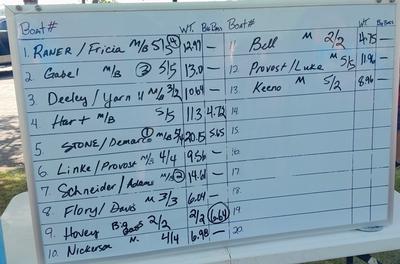 Boat# WT. Big Bass
1. RANER/Fricia M/B 5/5 ④ 12.97 —
2 Gabel M/B ③ 5/5 13.0 —
3. Deeley/Yarn M/B 3/2 10.64 —
4. Hart M/B 5/5 11.3 4.72
5. STONE/Demarco ① M/B 5/4 20.15 5.65
6. Linke/Provost M/B 4/4 9.56 —
7. Schneider/Adams M/B ② 14.61 —
8. Flory/Davis M 3/3 6.04 —
9. Hovey Big Bass 2/2 6.64
10. Nickerson M. 4/4 6.98 —
Boat# WT. Big Bass
11 Bell M 2/2 4.75 —
12. Provost/Luke M 5/5 11.96 —
13. Keeno M 5/2 8.96 —
14.
15.
16.
17.
18.
19
20.